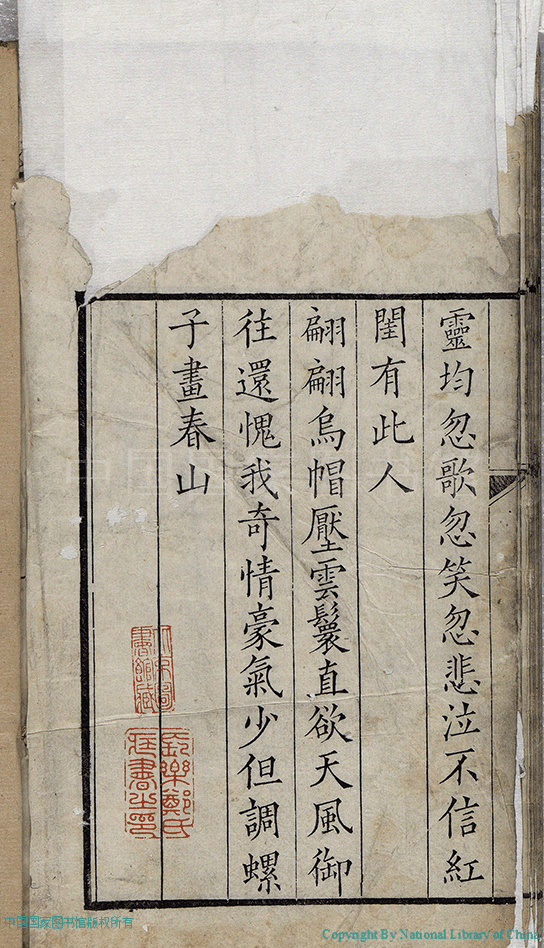 靈均忽歌忽笑忽悲泣不信紅
閨有此人
翩翩烏帽壓雲鬟直欲天風御
往還愧我奇情豪氣少但調螺
子畫春山
北京圖
書館藏
長樂鄭氏
藏書之印
中国国家图书馆版权所有
Copyright By National Library of China